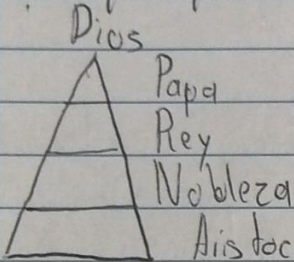 Dios
Papa
Rey
Nobleza
Aiistoc